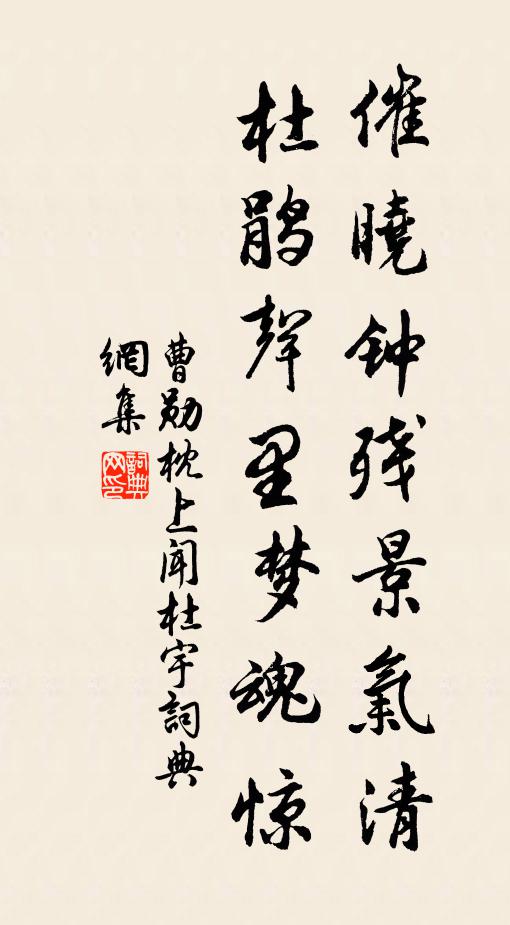 催曉钟残景氣清
杜鹃聲里梦魂惊
曹勋枕上闻杜宇詞典
網集
詞典网印